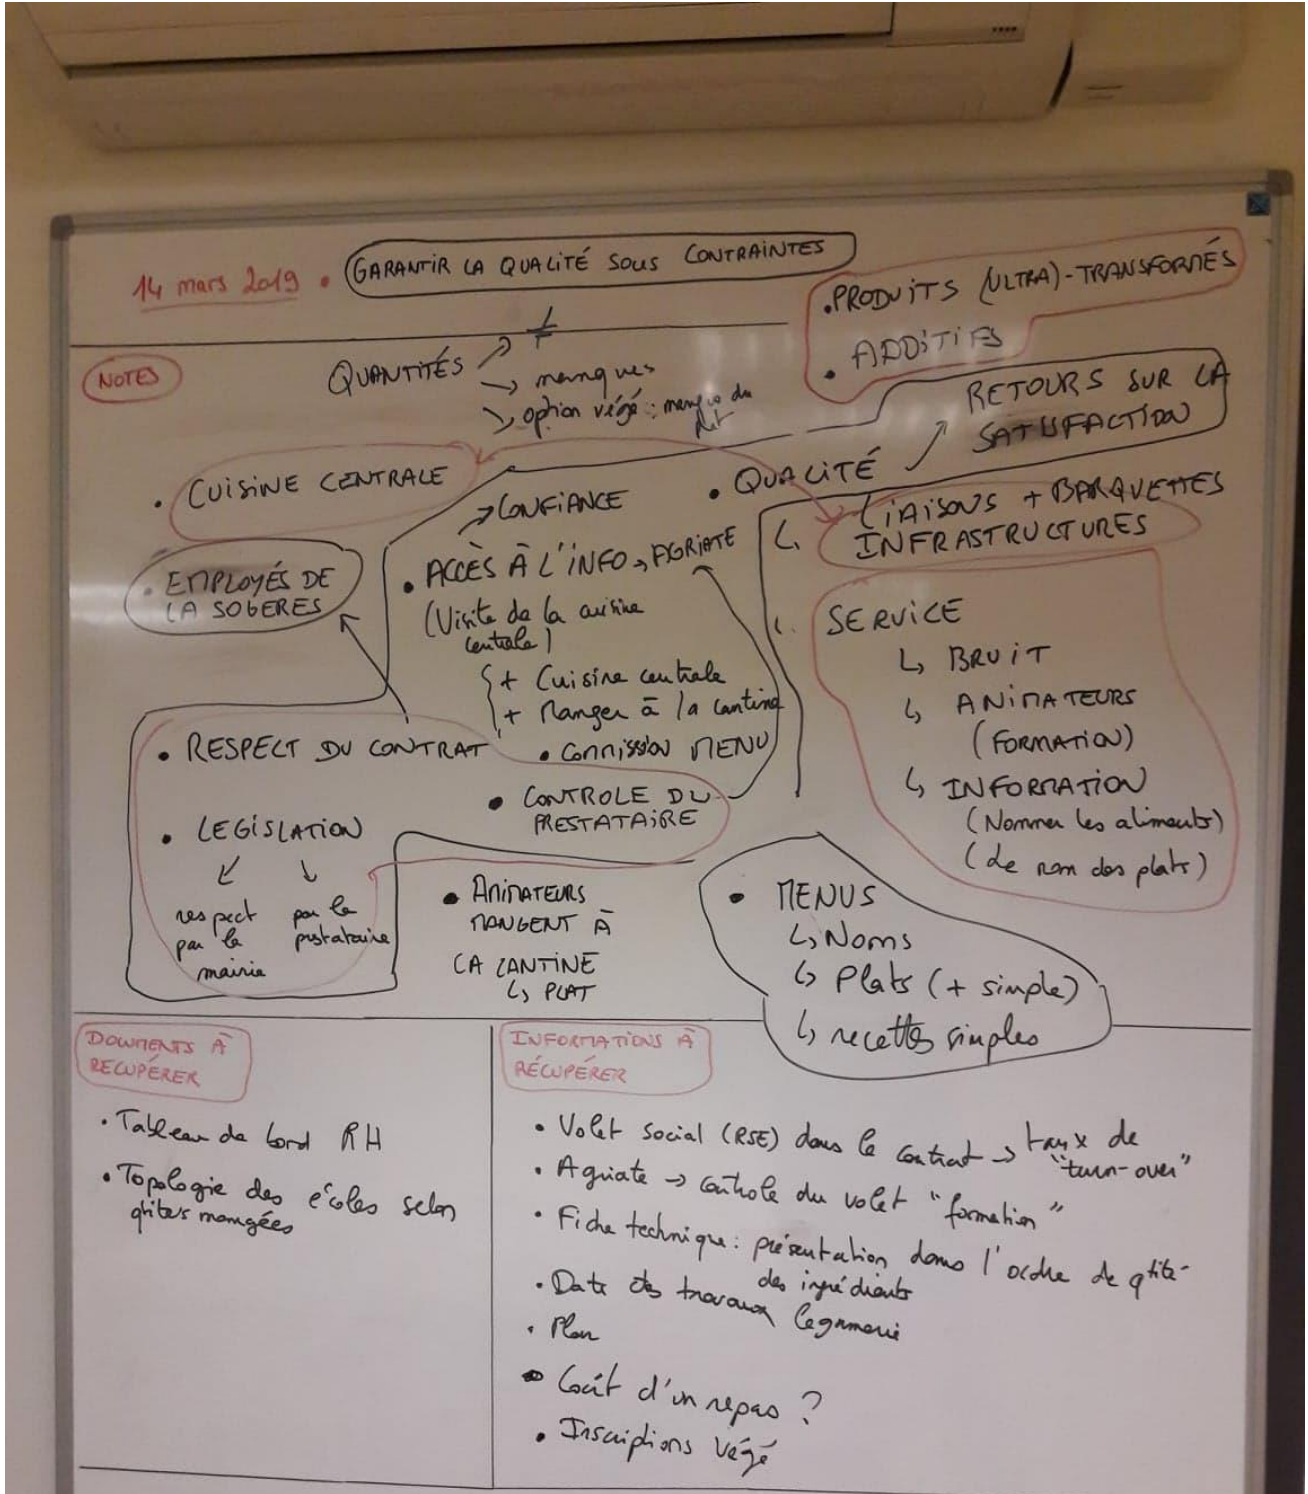 14 mars 2019 • GARANTIR LA QUALITÉ SOUS CONTRAINTES
• PRODUITS (ULTRA)-TRANSFORMÉS
• ADDITIFS
NOTES
QUANTITÉS ↗ ≠
→ manques
↘ option végé : manque du
plat
RETOURS SUR LA
SATISFACTION
• QUALITÉ ↗
• CUISINE CENTRALE
• EMPLOYÉS DE
LA SOGERES
↗ CONFIANCE
• ACCÈS À L'INFO → AGRIATE
(Visite de la cuisine
centrale)
+ Cuisine centrale
+ Manger à la cantine
• COMMISSION MENU
↳ LIAISONS + BARQUETTES
INFRASTRUCTURES
SERVICE
↳ BRUIT
↳ ANIMATEURS
(FORMATION)
↳ INFORMATION
(Nommer les aliments)
(de nom des plats)
• RESPECT DU CONTRAT
• CONTROLE DU
PRESTATAIRE
• LEGISLATION
↙ ↘
respect par le
par la prestataire
mairie
• ANIMATEURS
MANGENT À
LA CANTINE
↳ PLAT
• MENUS
↳ Noms
↳ Plats (+ simple)
↳ recettes simples
DOCUMENTS À
RECUPÉRER
• Tableau de bord RH
• Topologie des écoles selon
qtités mangées
INFORMATIONS À
RÉCUPÉRER
• Volet social (RSE) dans le contrat → taux de
"turn-over"
• Agriate → contrôle du volet "formation"
• Fiche technique : présentation dans l'ordre de qtité
des ingrédients
• Date des travaux légumerie
• Plan
• Coût d'un repas ?
• Inscriptions végé